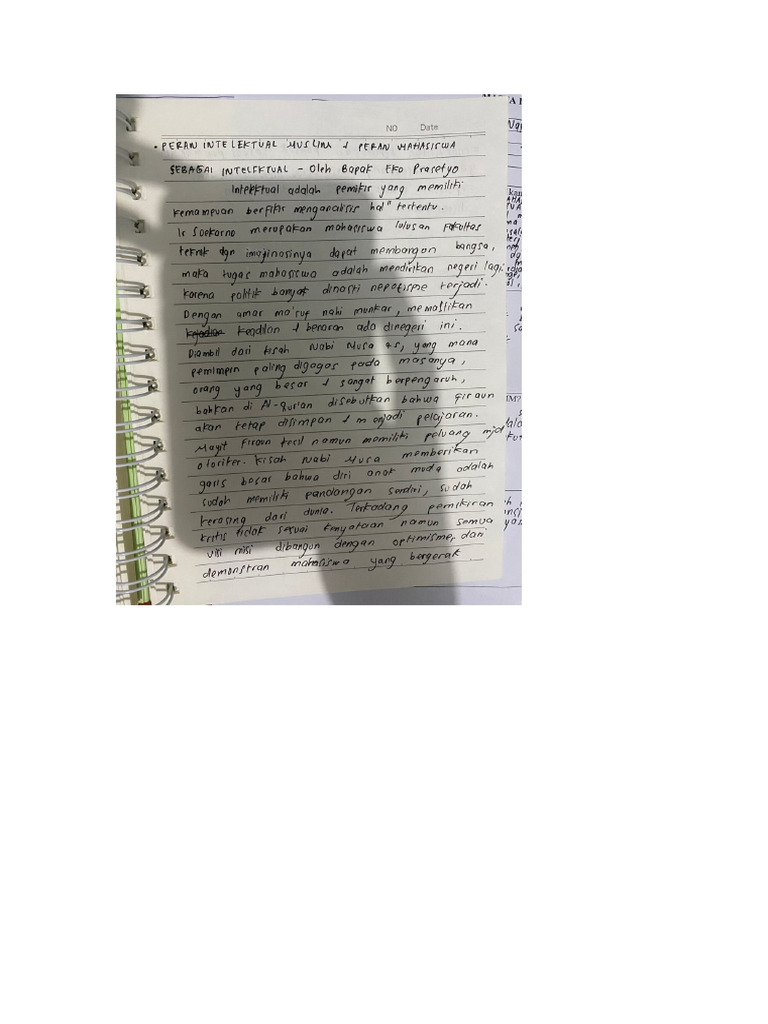 NO Date
• PERAN INTELEKTUAL MUSLIM & PERAN MAHASISWA
SEBAGAI INTELEKTUAL - Oleh Bapak Eko Prasetyo
Intelektual adalah pemikir yang memiliki
kemampuan berfikir menganalisis hal" tertentu.
Ir Soekarno merupakan mahasiswa lulusan Fakultas
teknik dgn imajinasinya dapat membangun bangsa,
maka tugas mahasiswa adalah mendirikan negeri lagi.
Karena politik banyak dinasti nepotisme terjadi.
Dengan amar ma'ruf nahi munkar, memastikan
Keadilan & benaran ada dinegeri ini.
Diambil dari kisah Nabi Musa as, yang mana
pemimpin paling digagas pada masanya,
orang yang besar & sangat berpengaruh,
bahkan di Al-Qur'an disebutkan bahwa firaun
akan tetap disimpan & menjadi pelajaran.
Mayit Firaun kecil namun memiliki peluang mjd
otoriter. Kisah Nabi Musa memberikan
garis besar bahwa diri anak muda adalah
sudah memiliki pandangan sendiri, sudah
terasing dari dunia. Terkadang pemikiran
kritis tidak sesuai kenyataan namun semua
visi misi dibangun dengan optimisme, dari
demonstran mahasiswa yang bergerak